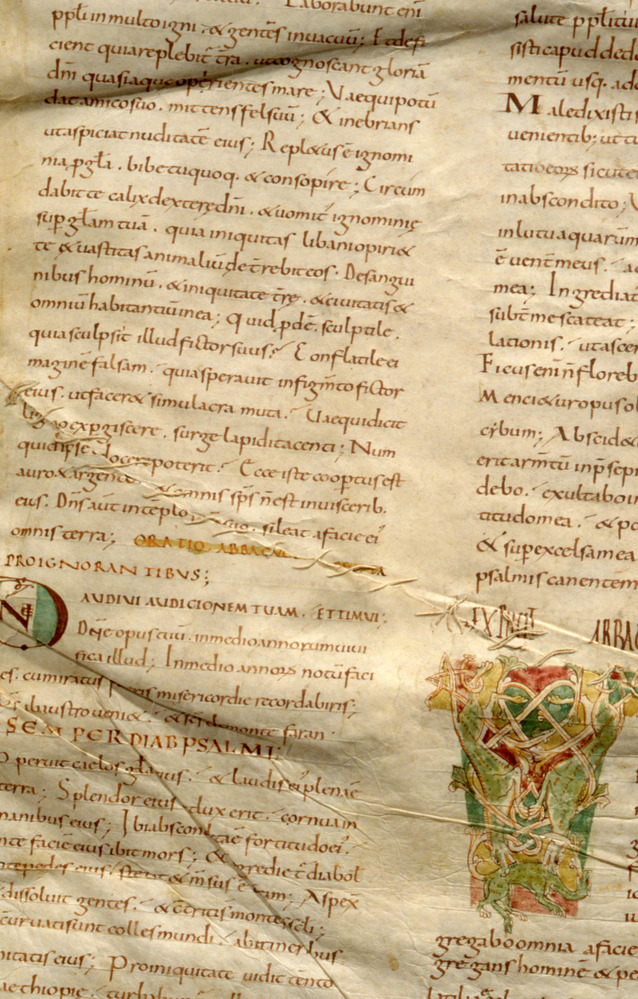 Laborabunt eni
ppli in multo igni . & gentes in uacuu ; Et defi
cient quia replebit tra . ut cognoscant gloria
dni quasi aque operientes mare ; Vae qui potu
dat amico suo . mittens fel suu ; & inebrians
ut aspiciat nuditate eius ; Repletus e ignomi
nia p gla . bibe tu quoq . & consopire ; Circum
dabit te calix dexterę dni . & uomit ignominię
sup glam tuam . quia iniquitas libani operi&
te & uastitas animaliu det rebit eos . De sangui
nibus hominu . & iniquitate trę . & ciuitatis &
omniu habitantiu in ea ; Quid pde . sculptile .
quia sculpsit illud fictor suus ? Conflatile &
magine falsam . quia sperauit in figmto fictor
eius . ut facer& simulacra muta . Vae qui dicit
ligno expgiscere . surge lapidi tacenti ; Num
quid ipse docere poterit ? Ecce iste cooptus est
auro & argento & omnis sps n est in uiscerib .
eius . Dns aut in teplo sco suo . sileat a facie ei
omnis terra ; ORATIO ABBACUC
PRO IGNORANTIBUS ;
AUDIVI AUDICIONEM TUAM . ET TIMUI ;
Dne opus tuu . in medio annorum uiui
fica illud ; In medio annors notu faci
es . cu miratus fueris misericordie recordaberis ;
Ds ab austro ueni& . & scs de monte faran
SEMPER DIABPSALMI ;
Operuit cielos gla eius . & laudis ei plena e
terra ; Splendor eius . dux erit . cornua in
manibus eius ; Ibi absconditae fortitudo ei .
nte facie eius ibit mors ; & egredie t diabol
nte pedes eius . stetit & msus e tram ; Aspex
dissoluit gentes . & contriti montes scli ;
curuati sunt colles mundi . ab itineribus
nitatis eius ; Pro iniquitate uidit tento
aethiopie . turbabu
salute ppli tui
sisti caput de do
mentu usq . ad
Maledixisti s
uenientib ; ut tu
tatio eors sicut e
in abscondito ; V
in lutu aquarum
e uent meus . a
mea ; Ingrediat
subt me scateat ;
lationis . ut ascen
Ficus eni n floreb
Menti& ur opus ol
cybum ; Abscid&
erit armtu in psepi
debo . exultabo in
titudo mea . & po
& sup excelsa mea
psalmis canentem
EXPLICIT ABBAC
gregabo omnia a facie
gregans homine & pe